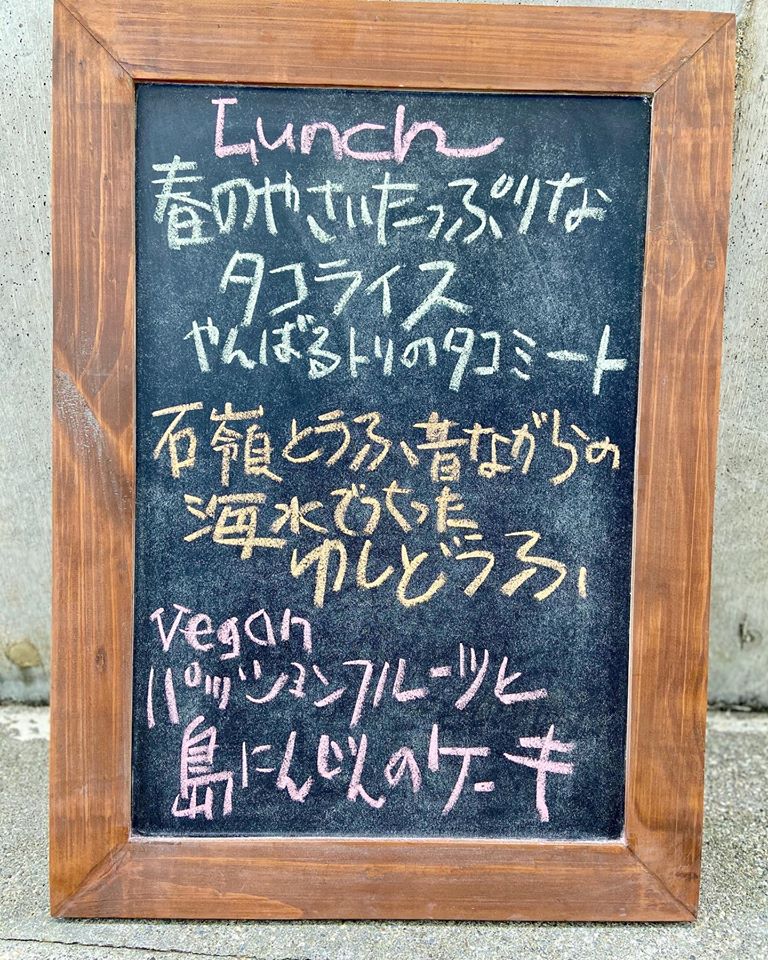 Lunch
春のやさいたっぷりな
タコライス
やんばるトリのタコミート
石嶺とうふ、昔ながらの
海水でつちった
ゆしどうふ、
Vegan
パッションフルーツと
島にんじんのケーキ